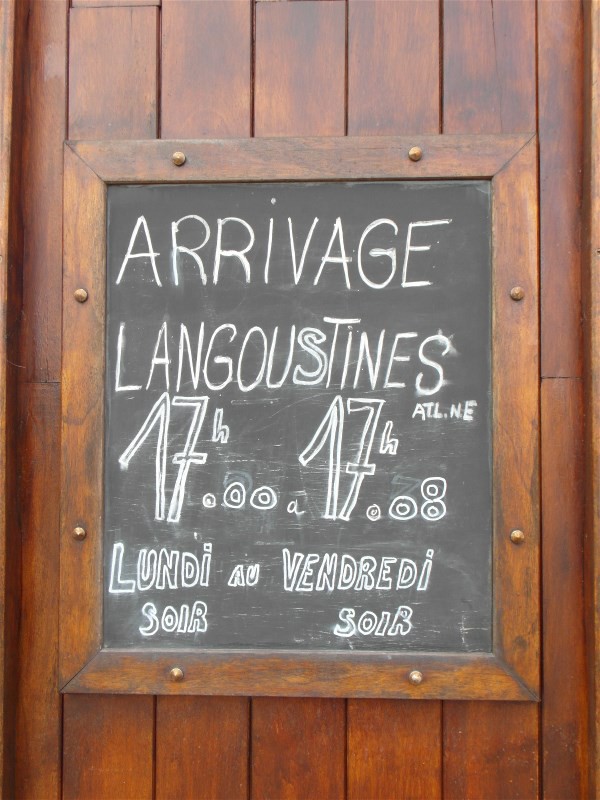 ARRIVAGE
LANGOUSTINES
ATL.NE
17h.00 a 17h.08
LUNDi AU VENDREDi
SOIR SOIR